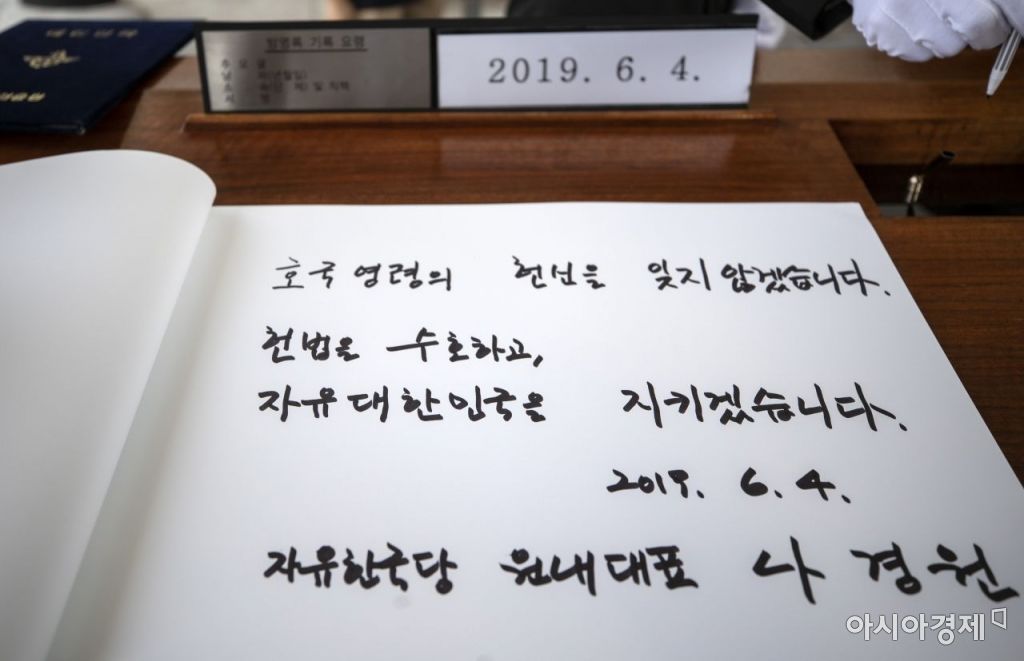 방명록 기록 요령
2019. 6. 4.
호국영령의 헌신을 잊지 않겠습니다.
헌법을 수호하고,
자유대한민국을 지키겠습니다.
2019. 6. 4.
자유한국당 원내대표 나경원
아시아경제